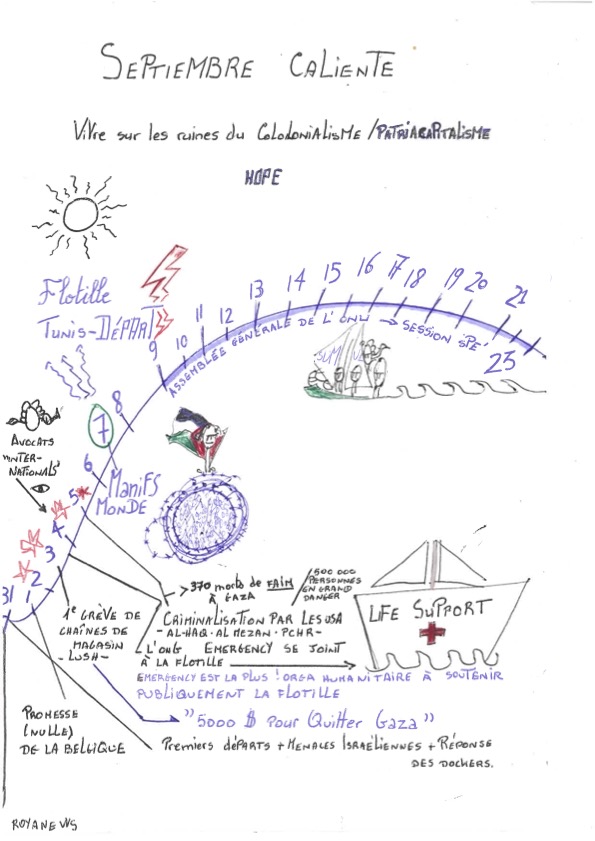 SEPTIEMBRE CALIENTE
ViVre sur les ruines du COLODONIALISME / PATRIACAPITALISME
HOPE
Flotille
TUNIS-DÉPART
9 10 11 12 13 14 15 16 17 18 19 20 21
23
ASSEMBLÉE GÉNÉRALE DE L'ONU → SESSION SPÉ'
SUMUD
8
7
6
5
4
3
2
1
31
AVOCATS
INTER-
NATIONALS
MANIFS
MONDE
370 morts de FAIM
À GAZA
/500 000
PERSONNES
EN GRAND
DANGER
CRIMINALISATION PAR LES USA
- AL-HAQ · AL MEZAN · PCHR -
L'ONG EMERGENCY SE JOINT
À LA FLOTILLE
1e GRÈVE DE
CHAÎNES DE
MAGASIN
- LUSH -
LIFE SUPPORT
EMERGENCY EST LA PLUS ! ORGA HUMANITAIRE À SOUTENIR
PUBLIQUEMENT LA FLOTILLE
"5000 $ pour Quitter Gaza"
PROMESSE
(NULLE)
DE LA BELGIQUE
Premiers départs + MENACES ISRAÉLIENNES + RÉPONSE
DES DOCKERS.
ROYANEWS